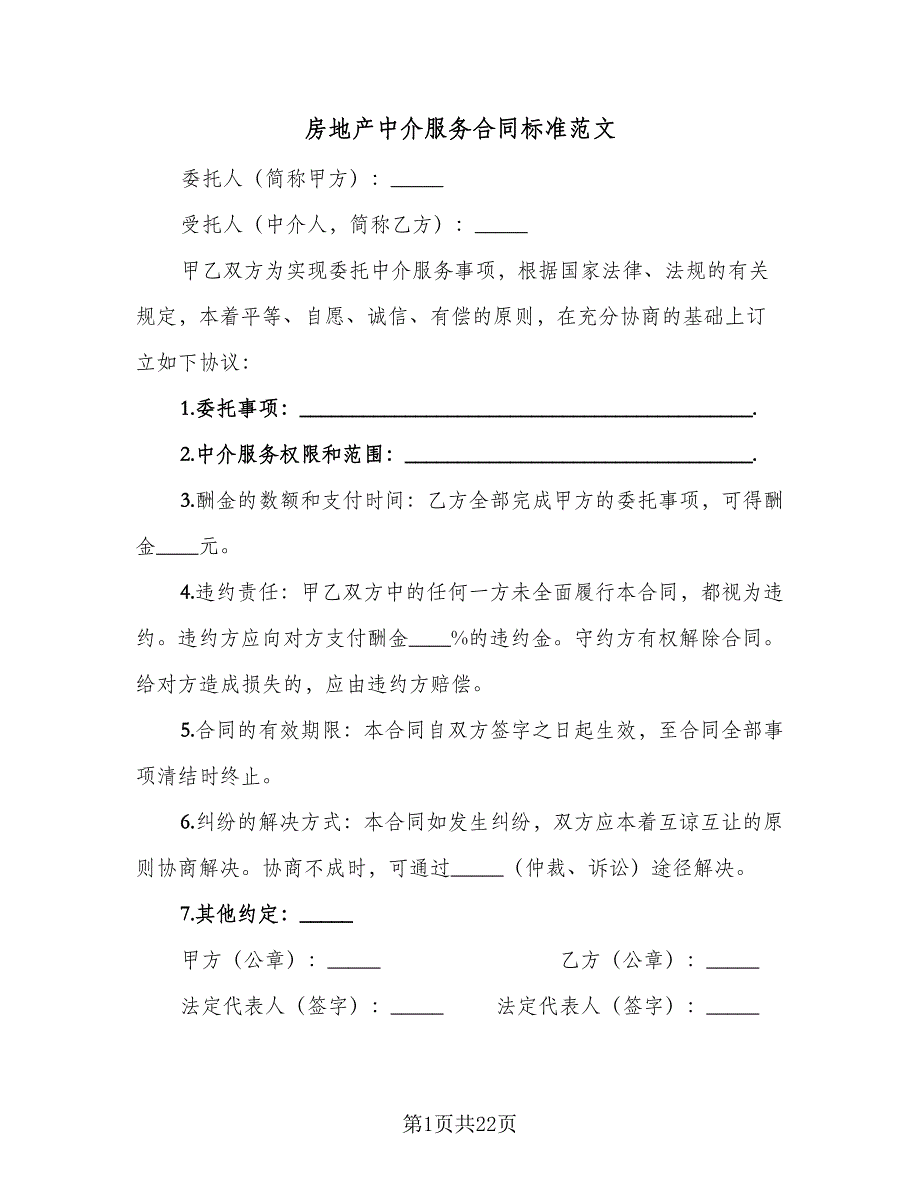 房地产中介服务合同标准范文
委托人（简称甲方）：_____
受托人（中介人，简称乙方）：_____
甲乙双方为实现委托中介服务事项，根据国家法律、法规的有关
规定，本着平等、自愿、诚信、有偿的原则，在充分协商的基础上订
立如下协议：
1.委托事项：___________________________________________.
2.中介服务权限和范围：_________________________________.
3.酬金的数额和支付时间：乙方全部完成甲方的委托事项，可得酬
金____元。
4.违约责任：甲乙双方中的任何一方未全面履行本合同，都视为违
约。违约方应向对方支付酬金____%的违约金。守约方有权解除合同。
给对方造成损失的，应由违约方赔偿。
5.合同的有效期限：本合同自双方签字之日起生效，至合同全部事
项清结时终止。
6.纠纷的解决方式：本合同如发生纠纷，双方应本着互谅互让的原
则协商解决。协商不成时，可通过_____（仲裁、诉讼）途径解决。
7.其他约定：_____
甲方（公章）：_____ 乙方（公章）：_____
法定代表人（签字）：_____ 法定代表人（签字）：_____
第1页共22页